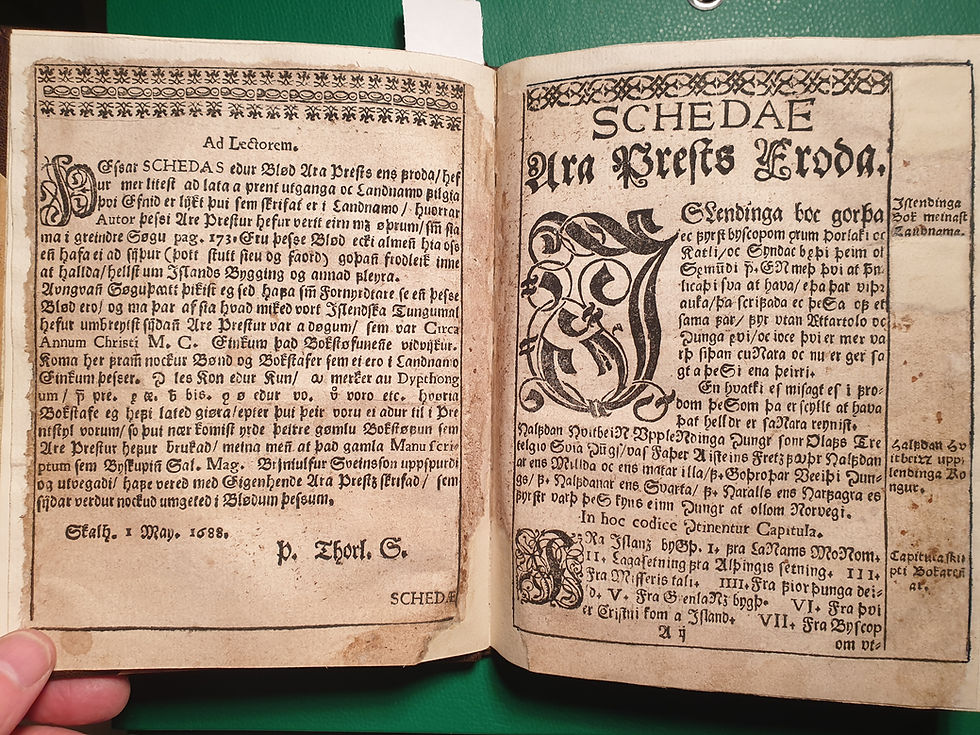 Ad Lectorem.
ÞEssar SCHEDAS edur Blød Ara Prests ens Froda/ hef
ur mer litest ad lata a prent utganga oc Landnamo filgia
þvi Efnid er lijkt þui sem skrifat er i Landnamo/ huorrar
Autor þessi Are Prestur hefur verit eirn mz øþrum/ sm sia
ma i greindre Søgu pag. 173. Eru þesse Blød ecki almeñ hia oss
eñ hafa ei ad sijþur (þott stutt sieu og faord) goþañ frodleik inne
at hallda/ hellst um Islands Bygging og annad fleyra.
Aungvañ Søguþætt þikist eg sed hafa sm Fornyrdtare se eñ þesse
Blød ero/ og ma þar af sia hvad miked vort Islendska Tungumal
hefur umbreytst sijdañ Are Prestur var a døgum/ sem var Circa
Annum Christi M. C. Einkum þad Bokstøfuneñe vidvijkur.
Koma her fram nockur Bønd og Bokstafer sem ei ero i Landnamo
Einkum þesser. les Kon edur Kun/ merker au Dypthong
um/ p̃ pre. ę æ. b̃ bis. ǫ ø edur vo. v̈ voro etc. hvøria
Bokstafe eg hefi lated giøra/ epter þui þeir voru ei adur til i Pre
ntstyl vorum/ so þui nær komist yrde þeirre gømlu Bokstøfun sem
Are Prestur hefur brukad/ meina meñ at þad gamla Manuscri-
ptum sem Byskupiñ Sal. Mag. Brijnjulfur Sveinsson uppspurdi
og utvegadi/ hafe vered med Eigenhende Ara Prestz skrifad/ sem
sijdar verdur nockud umgeted i Blødum þessum.
Skalh. 1 May. 1688.
Þ. Thorl. S.
SCHEDÆ
SCHEDAE
Ara Prests Froda.
ISLendinga boc gorþa
ec fyrst byscopom orum Þorlaki oc
Katli/ oc Syndac beþi þeim oc
Sęmundi p̃. EN meþ þvi at þm
licaþi sva at hava/ eþa þar viþr
auka/ þa scrifada ec þeSa of et
sama far/ fyr utan Ættartolo oc
Æfi/ oc þvi er mer va
rþ siþan cuNara oc nu er ger sa
gt a þeSi ena þeiri.
En hvatki es misagt es i fro-
dom þeSom þa er scyllt at hava
þat helldr er saNara reynist.
Halfdan HvitbeiN UppleNdinga Kungr sonr Olafs Tre
telgio Svia Kügs/ vas Faþer Aisteins Fretz faþr Halfdan
ar ens Millda oc ens matar illa/ f. Goþroþar Veeiþi Kun-
gs/ f. Halfdanar ens Svarta/ f. Haralls ens Harfagra es
fyrstr varþ þeS kyns einn Kungr at ollom Norvegi.
In hoc codice continentur Capitula.
FRa Islanz byGþ. I. fra LaNams MoNom.
II. Lagasetning fra Alþingis setning. III.
Fra Misseris tali. IIII. Fra fiorþunga dei-
d. V. Fra GrenlaNz bygþ. VI. Fra þvi
er Cristni kom a Island. VII. Fra Byscop
A ij
om vt-
Islendinga
Bok meinast
Landnama.
Halfdan Hv
itbeirr upp-
lendinga Ko
ngur.
Capitulaski-
pti Bokareñ
ar.